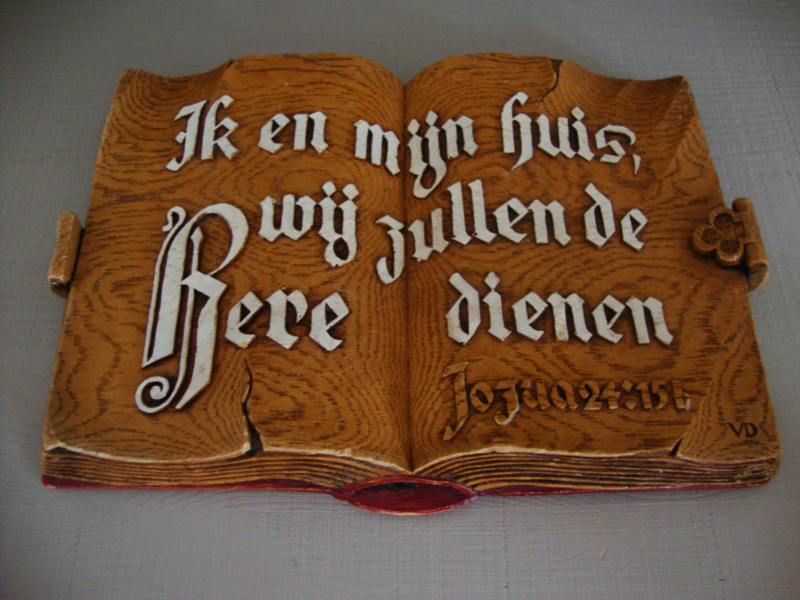 Ik en mijn huis,
wij zullen de
Here dienen
Jozua 24:15b
VD